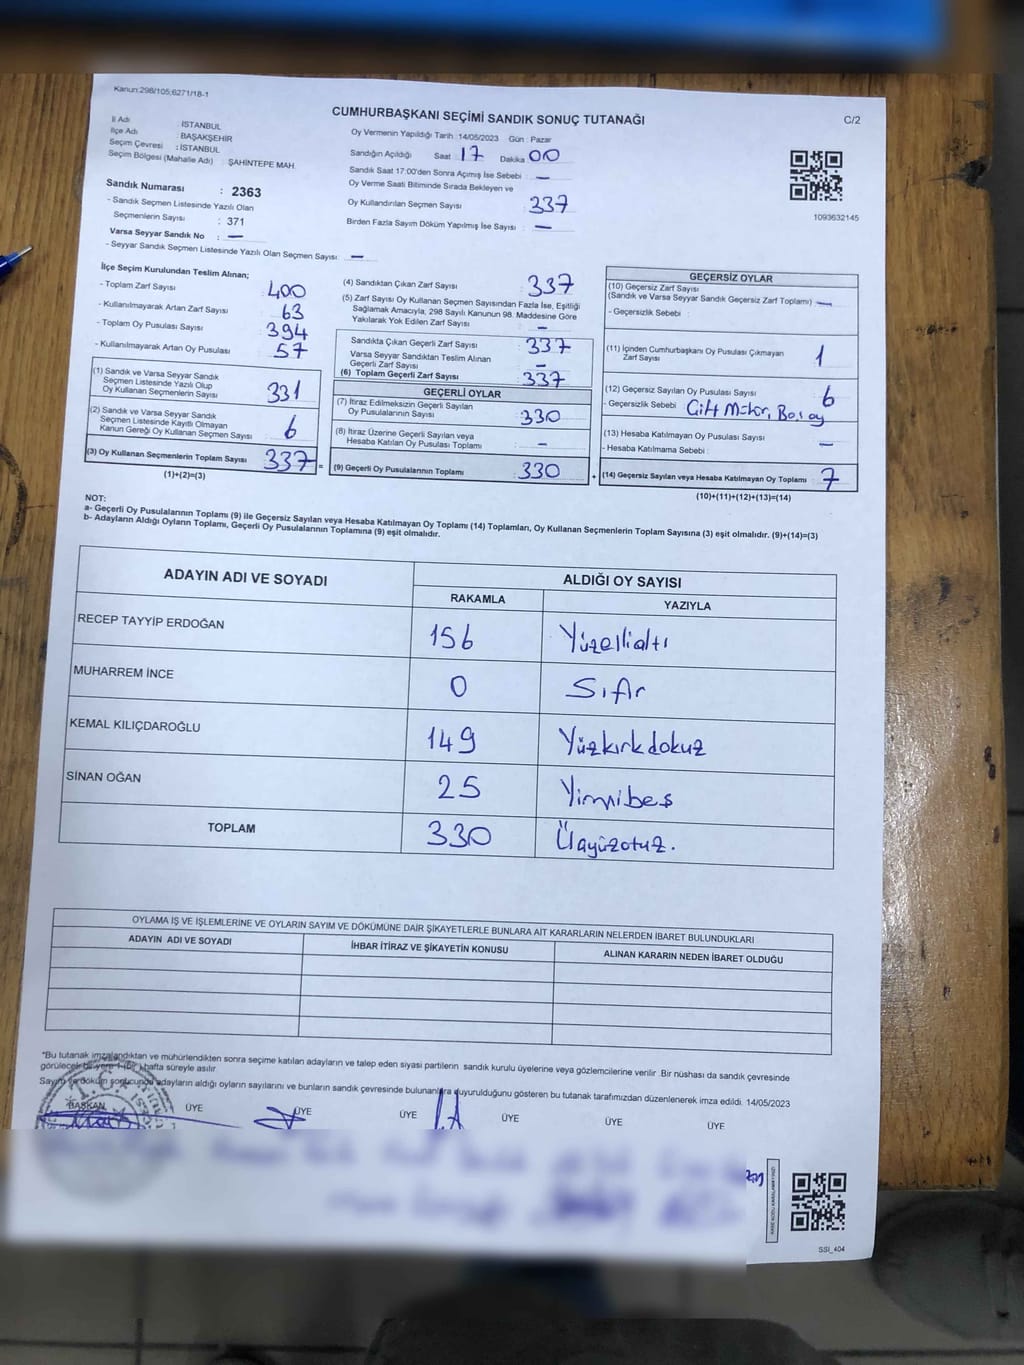 Kanun:298/105;6271/18-1
CUMHURBAŞKANI SEÇİMİ SANDIK SONUÇ TUTANAĞI
C/2
İl Adı : İSTANBUL
İlçe Adı : BAŞAKŞEHİR
Seçim Çevresi : İSTANBUL
Seçim Bölgesi (Mahalle Adı) : ŞAHİNTEPE MAH.
Sandık Numarası : 2363
- Sandık Seçmen Listesinde Yazılı Olan
Seçmenlerin Sayısı : 371
Varsa Seyyar Sandık No : —
- Seyyar Sandık Seçmen Listesinde Yazılı Olan Seçmen Sayısı: —
Oy Vermenin Yapıldığı Tarih :14/05/2023 Gün : Pazar
Sandığın Açıldığı Saat 17 Dakika 00
Sandık Saat 17:00'den Sonra Açımış İse Sebebi : —
Oy Verme Saati Bitiminde Sırada Bekleyen ve
Oy Kullandırılan Seçmen Sayısı : 337
Birden Fazla Sayım Döküm Yapılmış İse Sayısı : —
1093632145
İlçe Seçim Kurulundan Teslim Alınan;
- Toplam Zarf Sayısı : 400
- Kullanılmayarak Artan Zarf Sayısı : 63
- Toplam Oy Pusulası Sayısı : 394
- Kullanılmayarak Artan Oy Pusulası : 57
(1) Sandık ve Varsa Seyyar Sandık
Seçmen Listesinde Yazılı Olup
Oy Kullanan Seçmenlerin Sayısı : 331
(2) Sandık ve Varsa Seyyar Sandık
Seçmen Listesinde Kayıtlı Olmayan
Kanun Gereği Oy Kullanan Seçmen Sayısı : 6
(3) Oy Kullanan Seçmenlerin Toplam Sayısı : 337 =
(1)+(2)=(3)
(4) Sandıktan Çıkan Zarf Sayısı : 337
(5) Zarf Sayısı Oy Kullanan Seçmen Sayısından Fazla İse, Eşitliği
Sağlamak Amacıyla, 298 Sayılı Kanunun 98. Maddesine Göre
Yakılarak Yok Edilen Zarf Sayısı : —
Sandıkta Çıkan Geçerli Zarf Sayısı : 337
Varsa Seyyar Sandıktan Teslim Alınan
Geçerli Zarf Sayısı : —
(6) Toplam Geçerli Zarf Sayısı : 337
GEÇERLİ OYLAR
(7) İtiraz Edilmeksizin Geçerli Sayılan
Oy Pusulalarının Sayısı : 330
(8) İtiraz Üzerine Geçerli Sayılan veya
Hesaba Katılan Oy Pusulası Toplamı : —
(9) Geçerli Oy Pusulalarının Toplamı : 330 +
GEÇERSİZ OYLAR
(10) Geçersiz Zarf Sayısı
(Sandık ve Varsa Seyyar Sandık Geçersiz Zarf Toplamı) : —
- Geçersizlik Sebebi :
(11) İçinden Cumhurbaşkanı Oy Pusulası Çıkmayan
Zarf Sayısı : 1
(12) Geçersiz Sayılan Oy Pusulası Sayısı : 6
- Geçersizlik Sebebi : Çift Mühür,
(13) Hesaba Katılmayan Oy Pusulası Sayısı : —
- Hesaba Katılmama Sebebi :
(14) Geçersiz Sayılan veya Hesaba Katılmayan Oy Toplamı : 7
(10)+(11)+(12)+(13)=(14)
NOT:
a- Geçerli Oy Pusulalarının Toplamı (9) ile Geçersiz Sayılan veya Hesaba Katılmayan Oy Toplamı (14) Toplamları, Oy Kullanan Seçmenlerin Toplam Sayısına (3) eşit olmalıdır. (9)+(14)=(3)
b- Adayların Aldığı Oyların Toplamı, Geçerli Oy Pusulalarının Toplamına (9) eşit olmalıdır.
ADAYIN ADI VE SOYADI ALDIĞI OY SAYISI
RAKAMLA YAZIYLA
RECEP TAYYİP ERDOĞAN 156 Yüzellialtı
MUHARREM İNCE 0 Sıfır
KEMAL KILIÇDAROĞLU 149 Yüzkırkdokuz
SİNAN OĞAN 25 Yirmibeş
TOPLAM 330 Üçyüzotuz.
OYLAMA İŞ VE İŞLEMLERİNE VE OYLARIN SAYIM VE DÖKÜMÜNE DAİR ŞİKAYETLERLE BUNLARA AİT KARARLARIN NELERDEN İBARET BULUNDUKLARI
ADAYIN ADI VE SOYADI İHBAR İTİRAZ VE ŞİKAYETİN KONUSU ALINAN KARARIN NEDEN İBARET OLDUĞU
*Bu tutanak imzalandıktan ve mühürlendikten sonra seçime katılan adayların ve talep eden siyasi partilerin sandık kurulu üyelerine veya gözlemcilerine verilir .Bir nüshası da sandık çevresinde
görülecek bir yere 1 (bir) hafta süreyle asılır
Sayım ve döküm sonucunda adayların aldığı oyların sayılarını ve bunların sandık çevresinde bulunanlara duyurulduğunu gösteren bu tutanak tarafımızdan düzenlenerek imza edildi. 14/05/2023
BAŞKAN ÜYE ÜYE ÜYE ÜYE ÜYE ÜYE
T.C.
SSI_404